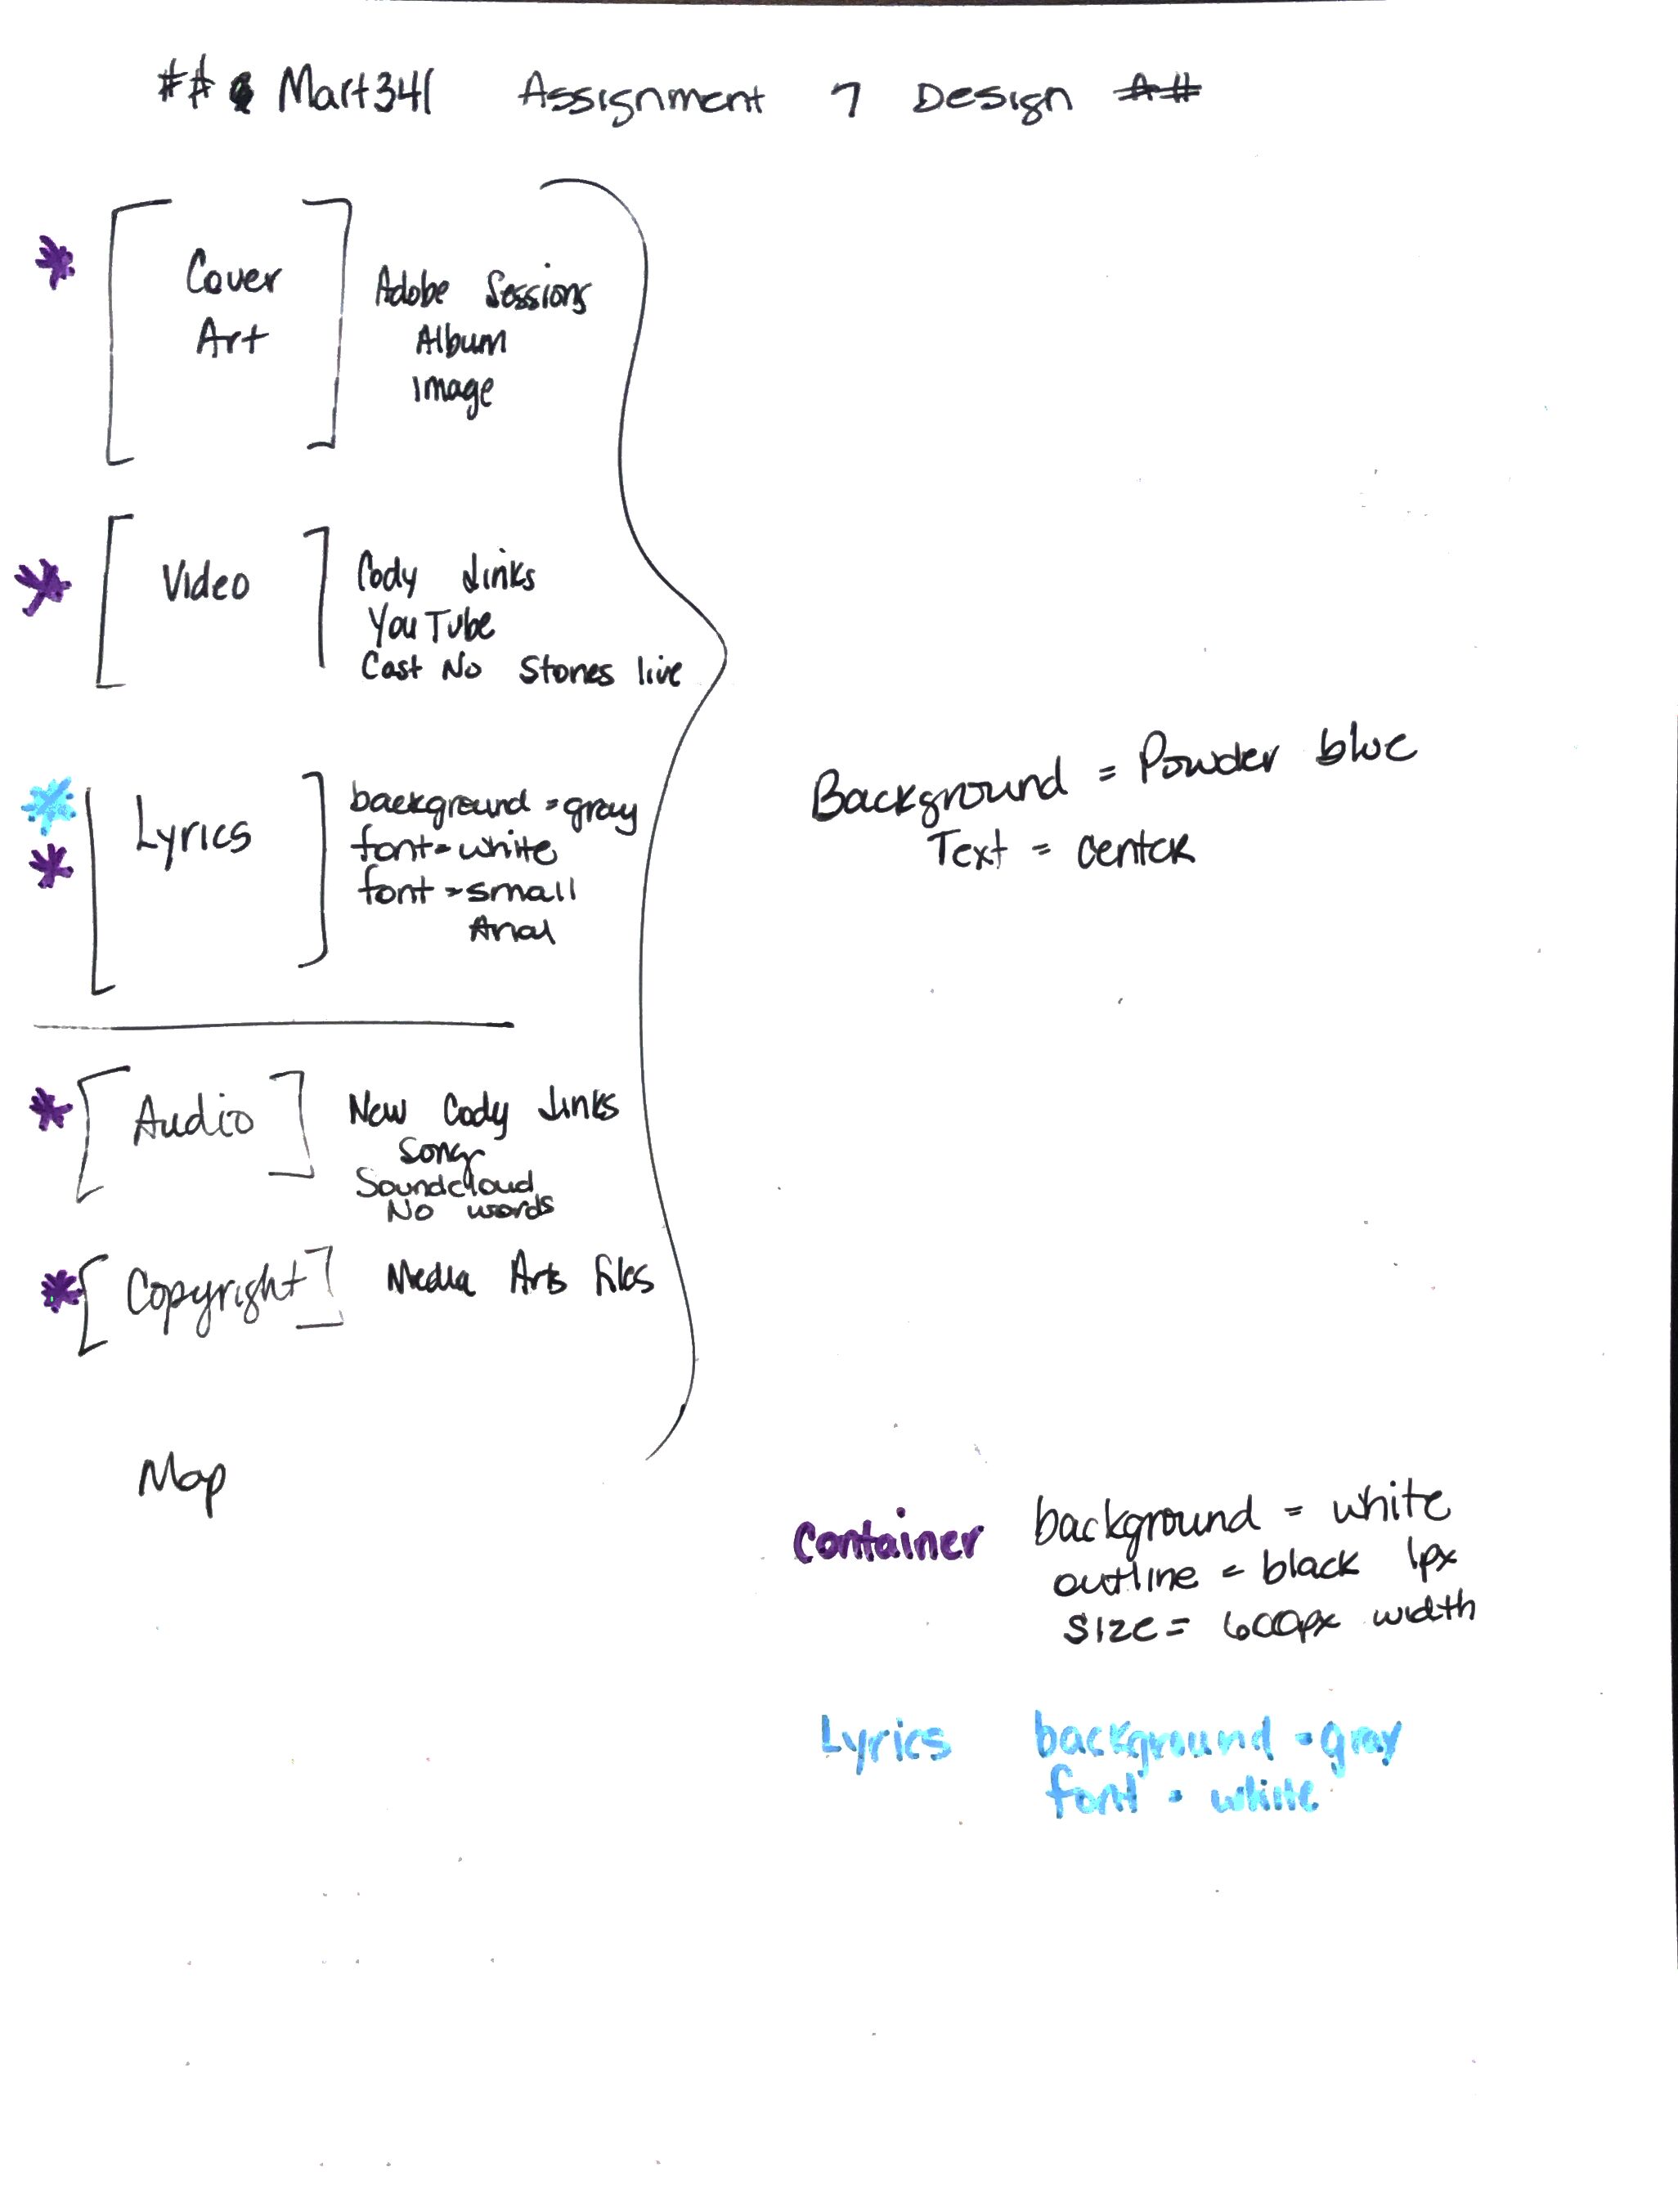 ## Mart341 Assignment 7 Design ##
Cover
Art
Adobe Sessions
Album
Image
Video
Cody Jinks
YouTube
Cast No Stones live
Lyrics
background = gray
font = white
font = small
Arial
Background = Powder blue
Text = center
Audio
New Cody Jinks
Song
Soundcloud
No words
Copyright
Media Arts files
Map
Container
background = white
outline = black 1px
size = 600px width
Lyrics
background = gray
font = white